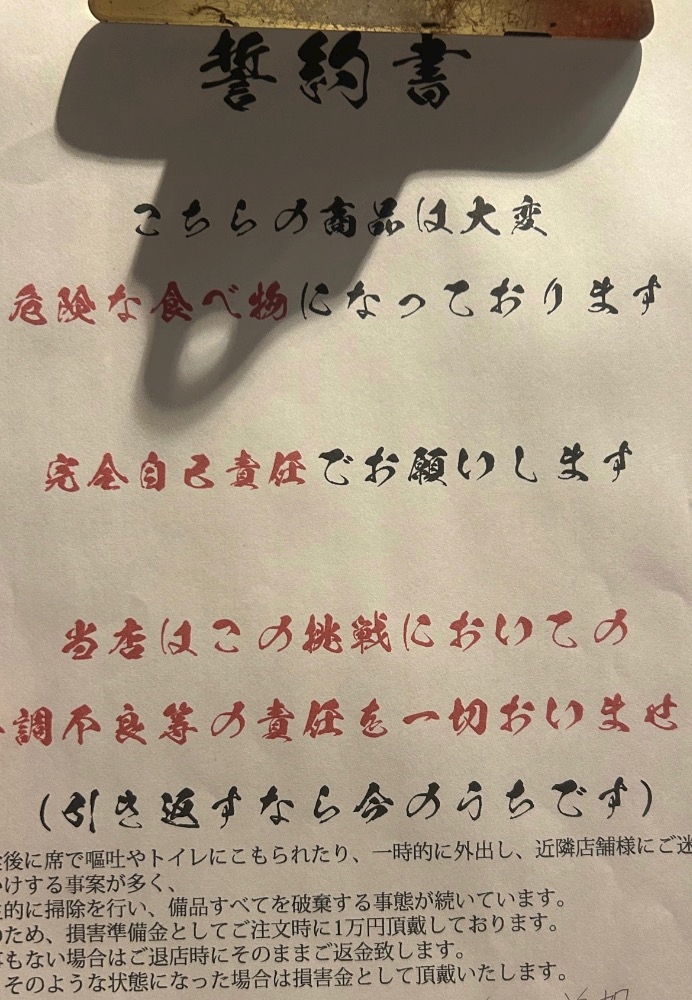 誓約書
こちらの商品は大変
危険な食べ物になっております
完全自己責任でお願いします
当店はこの挑戦においての
調不良等の責任を一切おいませ
(引き返すなら今のうちです)
後に席で嘔吐やトイレにこもられたり、一時的に外出し、近隣店舗様にご迷
けする事案が多く、
的に掃除を行い、備品すべてを破棄する事態が続いています。
ため、損害準備金としてご注文時に1万円頂戴しております。
もない場合はご退店時にそのままご返金致します。
そのような状態になった場合は損害金として頂戴いたします。